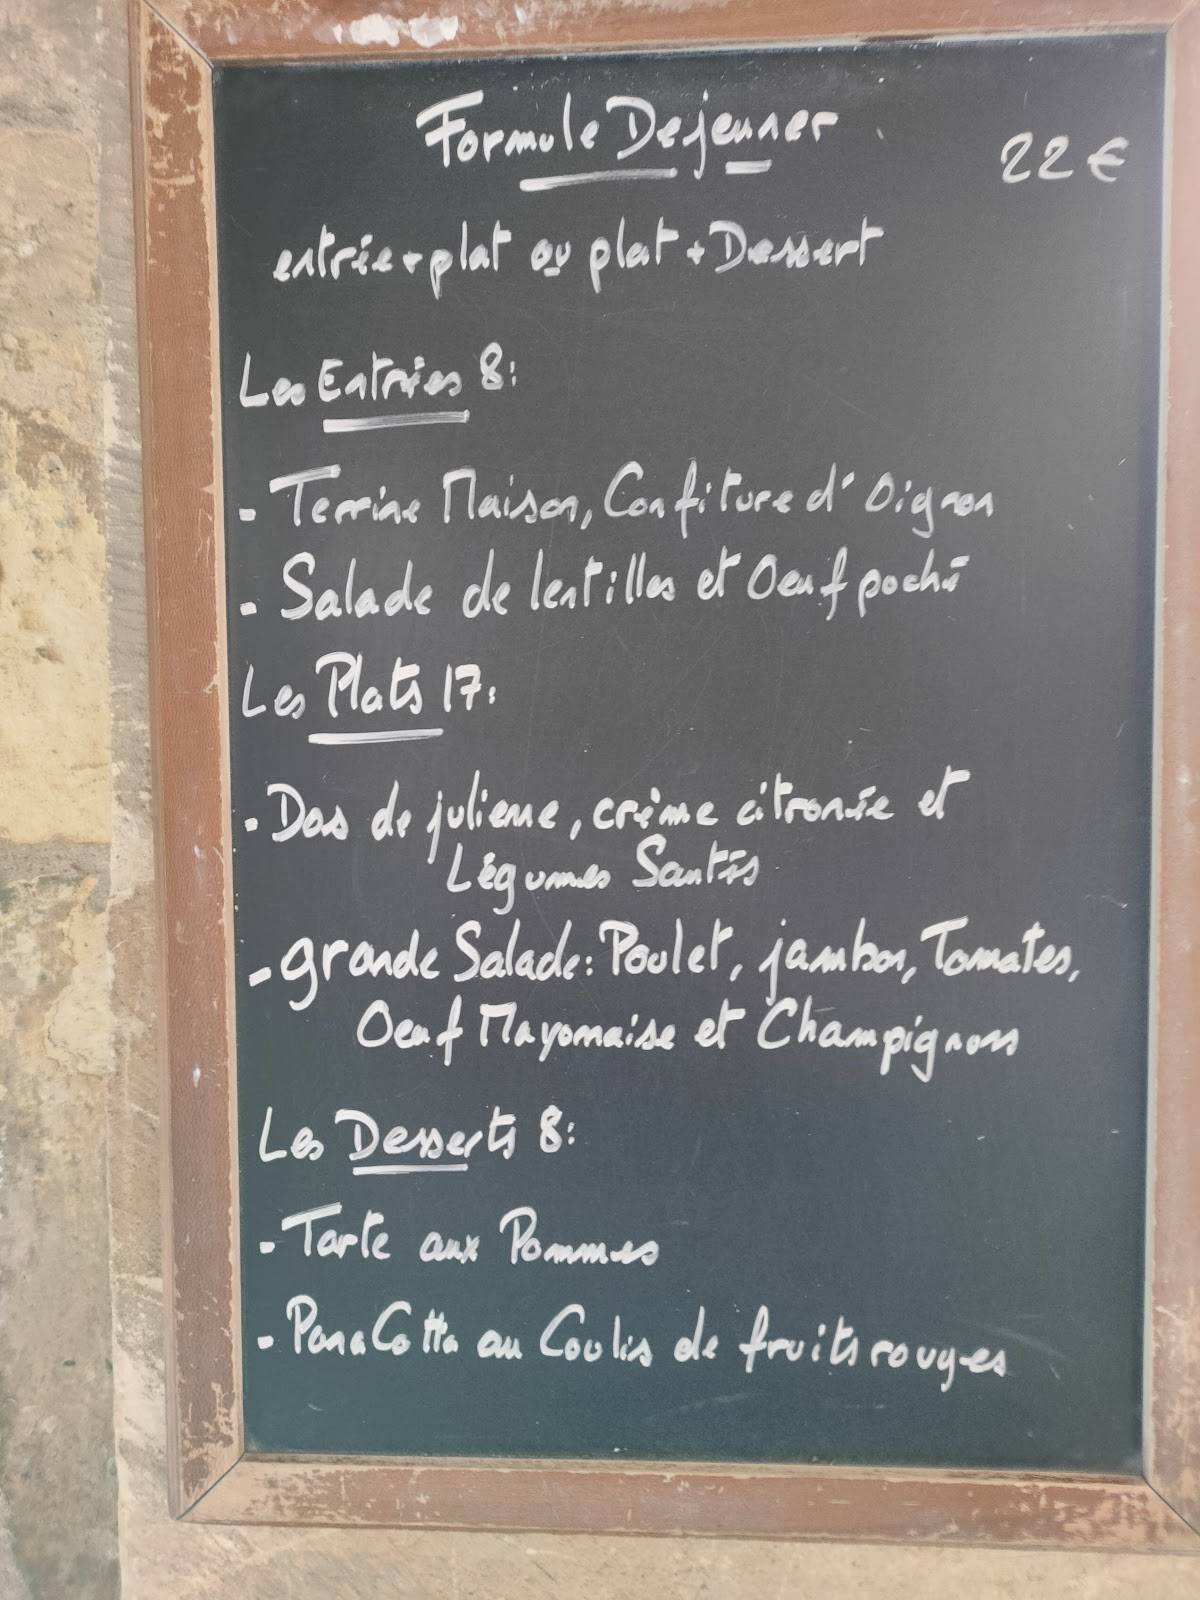 Formule Dejeuner
22€
entrée + plat ou plat + Dessert
Les Entrées 8:
- Terrine Maison, Confiture d'Oignon
- Salade de lentilles et Oeuf poché
Les Plats 17:
- Dos de julienne, crème citronée et
Légumes Santés
- grande Salade: Poulet, jambon, Tomates,
Oeuf Mayonaise et Champignons
Les Desserts 8:
- Tarte aux Pommes
- Pana Cotta au Coulis de fruits rouges